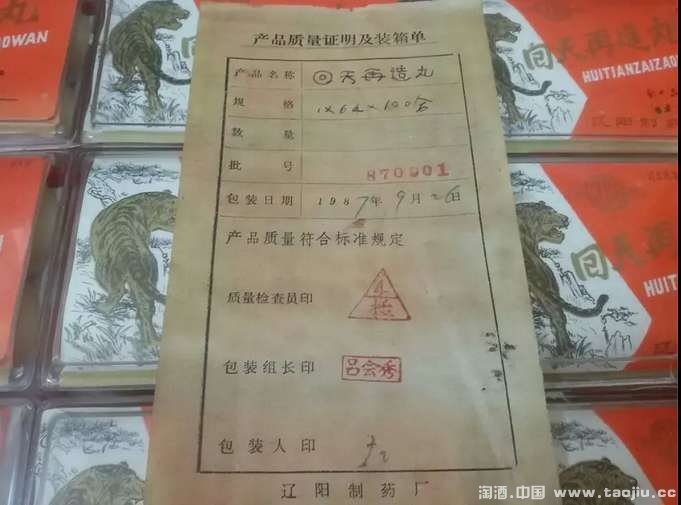 产品质量证明及装箱单
产品名称 回天再造丸
规格 1×6丸×100合
数量
批号 870901
包装日期 1987年9月26日
产品质量符合标准规定
质量检查员印
包装组长印 吕会秀
包装人印
辽阳制药厂
丸
OWAN
回天再造丸
HUITIANZAIZAO
回天再造
HUITI
淘酒.中国 www.taojiu.cc